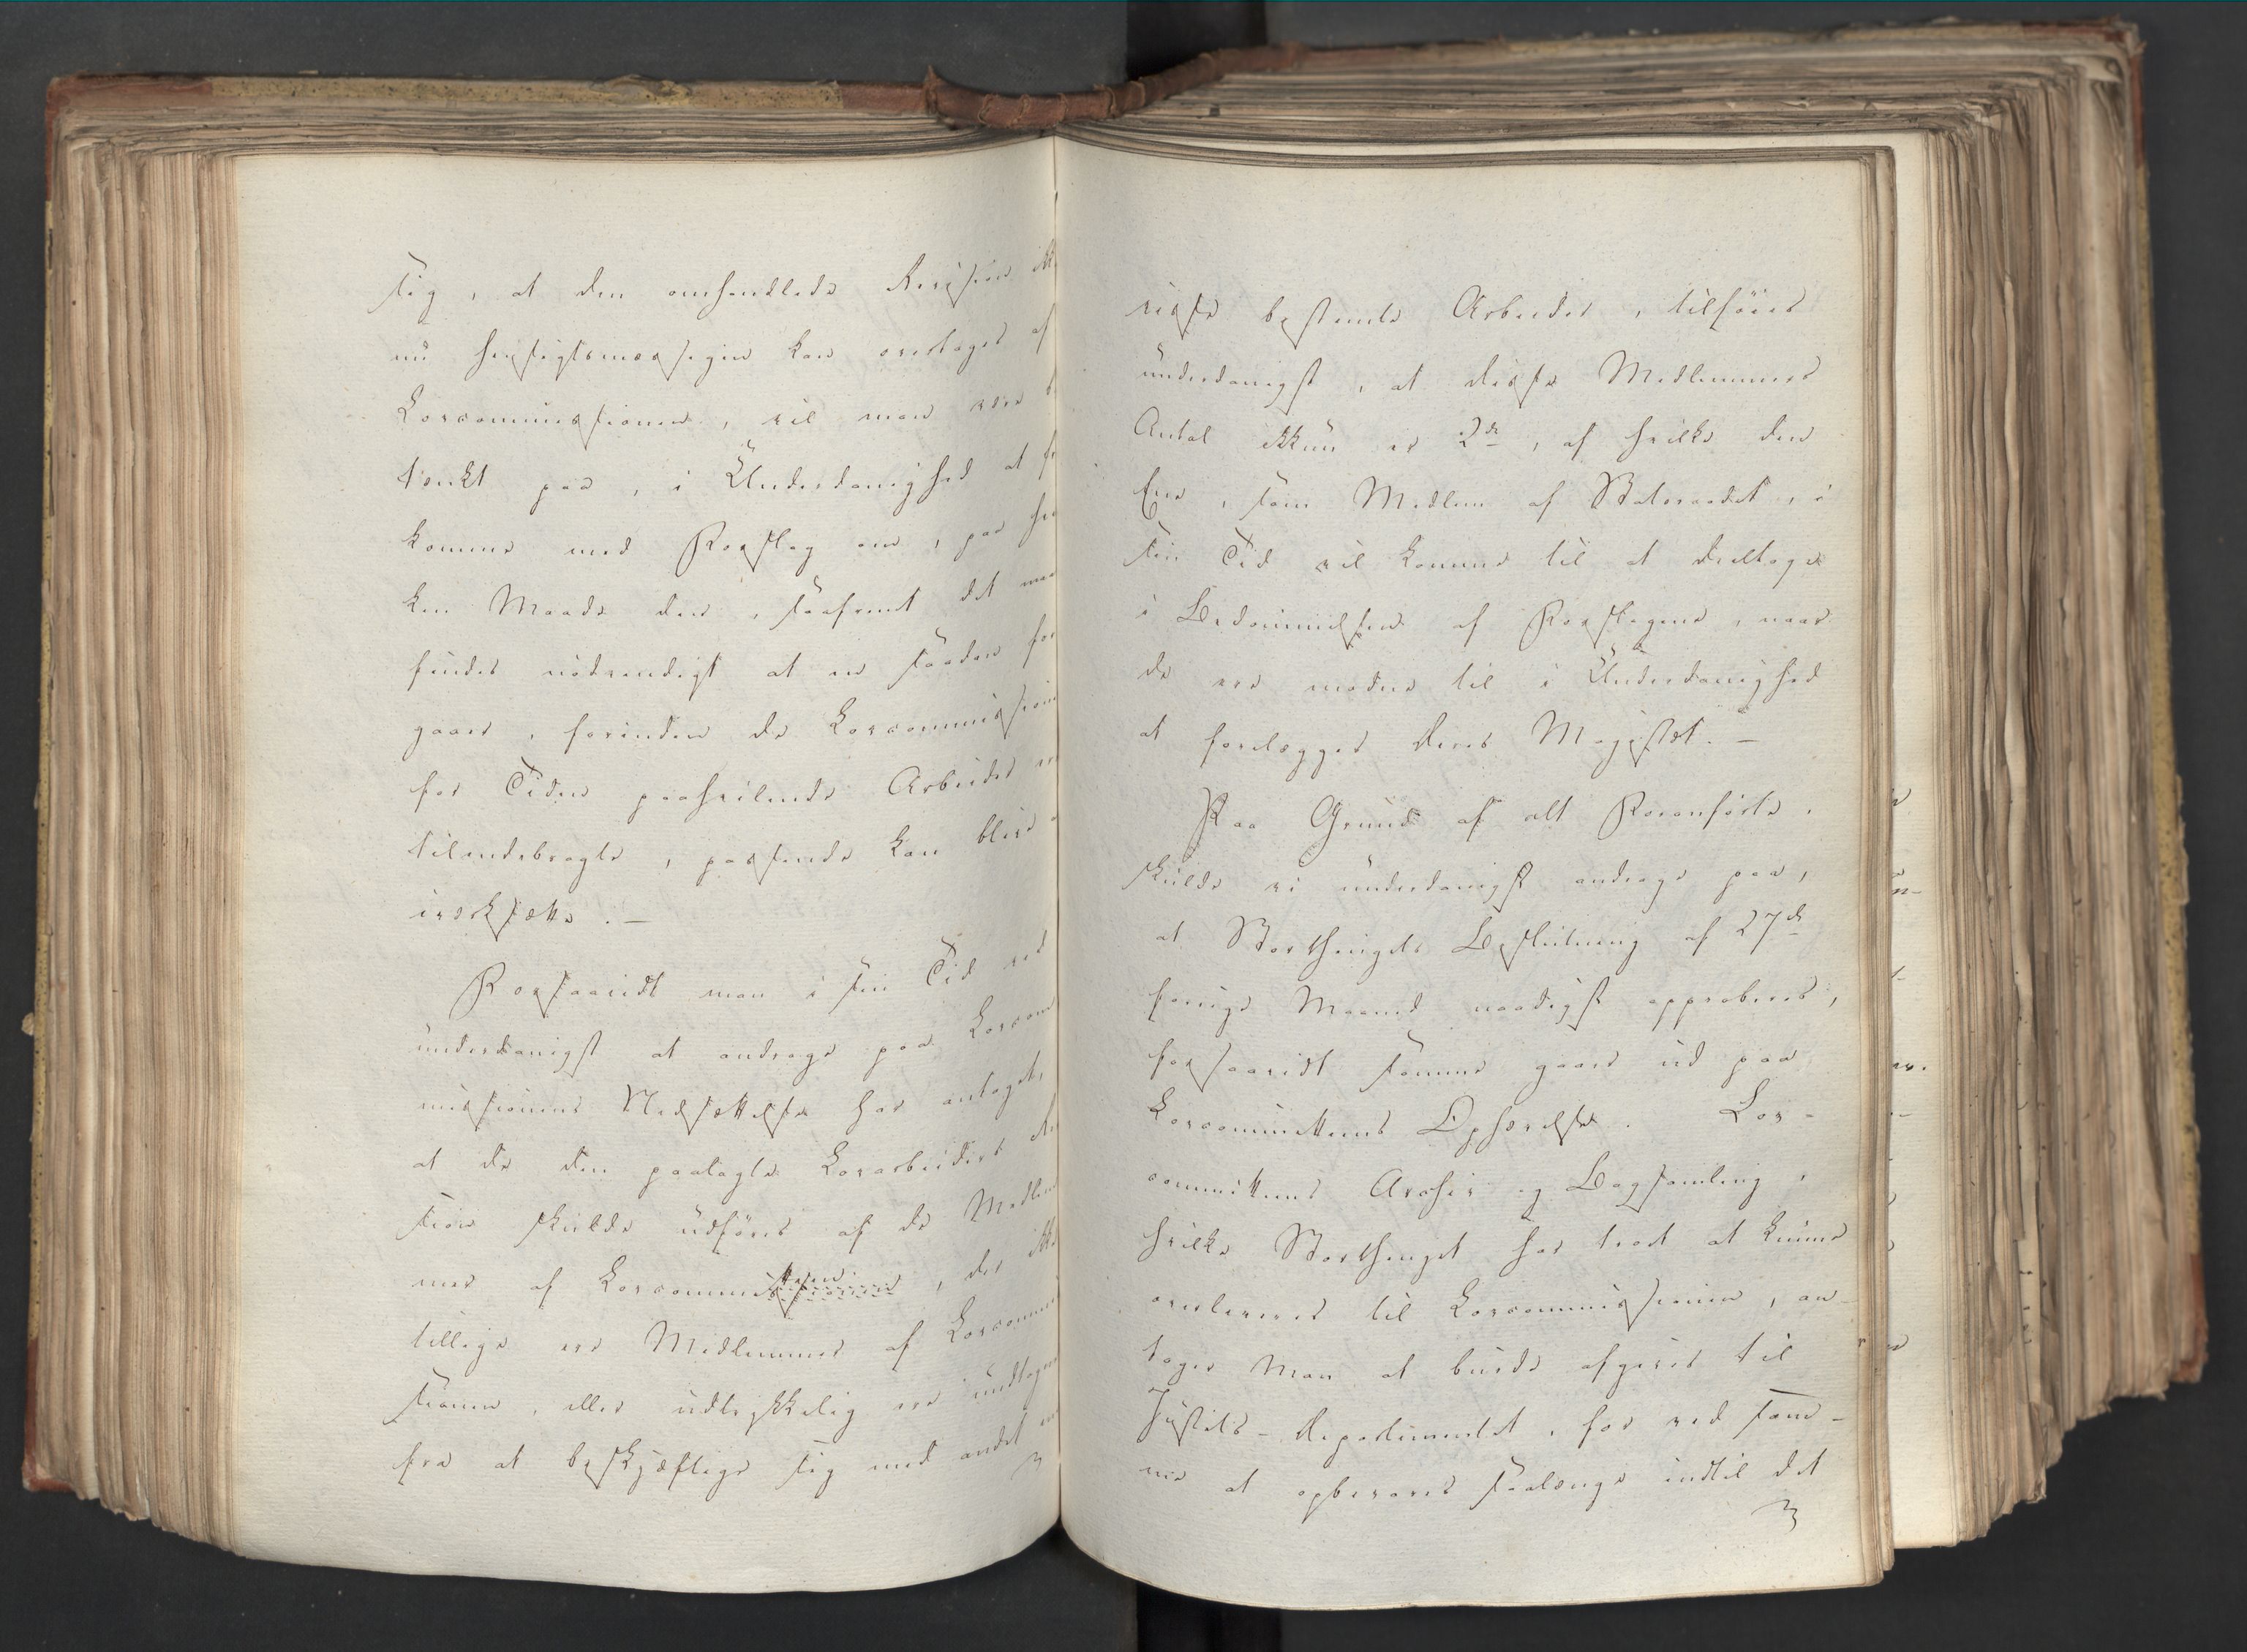 sig, at den omhandlede Revision ik
nu hensigtsmæssigen kan overtages af
Lovcommissionen, vil man være b
tænkt paa, i Underdanighed at fr
komme med Forslag om, paa hvi
ken Maade den, saafremt det maa
findes nødvendigt at en saadan for
gaaer, forinden de Lovcommission
for Tiden paahvilende Arbeider er
tilendebragte, passende kan blive at
iværksætte. –
Forsaavidt man i sin Tid ved
underdanigst at andrage paa Lovcom
missionens Nedsættelse har antaget,
at de den paalagte Lovarbeiders Re
sion skulde udføres af de Medlem
mer af Lovcommissionen tteen, der ikke
tillige ere Medlemmer af Lovcommi
sionen, eller udtrykkelig ere undtagne
fra at beskjæftige sig med andet en
visse bestemte Arbeider, tilføies
underdanigst, at disse Medlemmers
Antal ikkun er 2de, af hvilke den
Ene, som Medlem af Statsraadet, i
sin Tid vil komme til at deeltage
i Bedømmelsen af Forslagene, naar
de ere modne til i Underdanighed
at forelægges Deres Majestæt. –
Paa Grund af alt Foranførte,
skulde vi underdanigst andrage paa,
at Storthingets Beslutning af 27de
forrige Maaned naadigst approberes,
forsaavidt samme gaaer ud paa
Lovcommitteens Ophævelse. Lov-
committeens Archiv og Bogsamling,
hvilke Storthinget har troet at kunne
overleveres til Lovcommissionen, an-
tager man at burde afgives til
Justits-Departementet, for ved sam-
me at opbevares saalænge indtil det